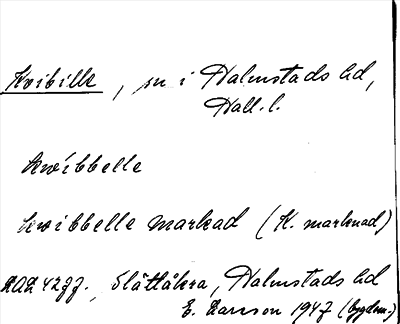 Kvibille, sn i Halmstads hd,
Hall. l.
kwíbbelle
kwibbelle markad (K. marknad)
Slättåkra, Halmstads hd
E. Larsson 1947 (bygdem.)